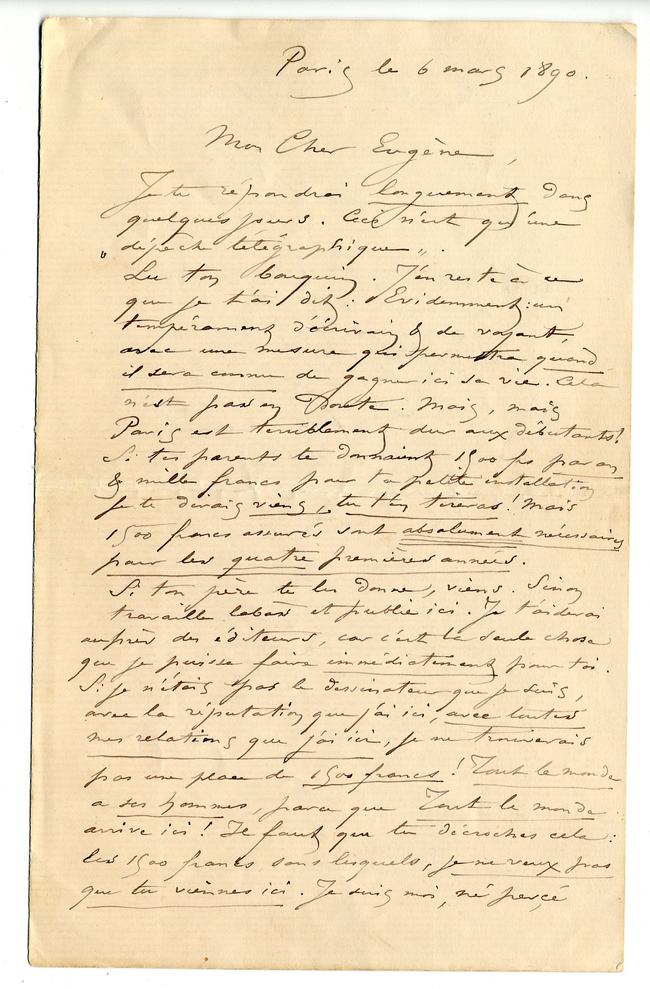 Paris le 6 mars 1890.
Mon Cher Eugène,
Je te répondrai longuement dans
quelques jours. Ceci n'est qu'une
„ dépèche télégraphique „.
Lu ton bouquin. J'en reste à ce
que je t'ai dit : Evidemment : un
tempérament d'écrivain & de voyant,
avec une mesure qui permettra quand
il sera connu de gagner ici sa vie. Cela
n'est pas en Doute. Mais, mais
Paris est terriblement dur aux débutants !
Si tes parents te donnaient 1500 frs par an
& mille francs pour ta petite installation
je te dirais viens, tu t'en tireras ! Mais
1500 francs assurés sont absolument nécessaires
pour les quatre premières années.
Si ton père te les donne, viens. Sinon
travaille labas et publie ici. Je t'aiderai
auprès des éditeurs, car c'est la seule chose
que je puisse faire immédiatement pour toi.
Si je n'étais pas le dessinateur que je suis,
avec la réputation que j'ai ici, avec toutes
mes relations que j'ai ici, je ne trouverais
pas une place de 1500 francs ! Tout le monde
a ses hommes, parce que Tout le monde
arrive ici ! Il faut que tu décroches cela :
les 1500 francs sans lesquels, je ne veux pas
que tu viennes ici. Je suis moi, né percé